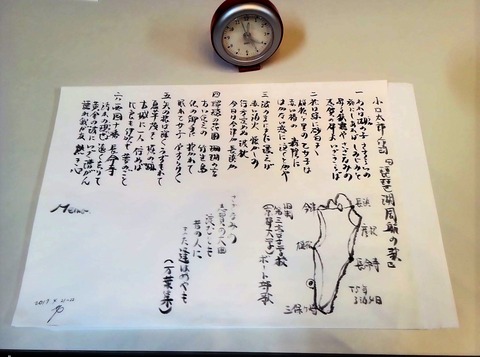 小口太郎作詞 琵琶湖周航の歌
一 われは湖の子 さすらいの
旅にしあれば しみじみと
昇る狭霧や さざなみの
志賀の都よ いざさらば
二 松は緑に 砂白き
雄松が里の 乙女子は
赤い椿の 森陰に
はかない恋に 泣くとかや
三 波のまにまに 漂えば
赤い泊火 懐かしみ
行方定めぬ 波枕
今日は今津か 長浜か
四 瑠璃の花園 珊瑚の宮
古い伝えの 竹生島
仏の御手に 抱かれて
眠れ乙女子 やすらけく
五 矢の根は深く うずもれて
夏草しげき 堀の跡
古城に一人 佇めば
比良も伊吹も 夢のごと
六 西国十番 長命寺
汚れの現世 遠く去りて
黄金の波に いざ漕がん
語れ我が友 熱き心
長浜
長命寺
今津
三保ヶ崎
旧制
第三高等学校
(京都大学) ボート部歌
さざなみの
志賀の大曲
淀むとも
昔の人に
また逢はめやも
(万葉集)
Memo